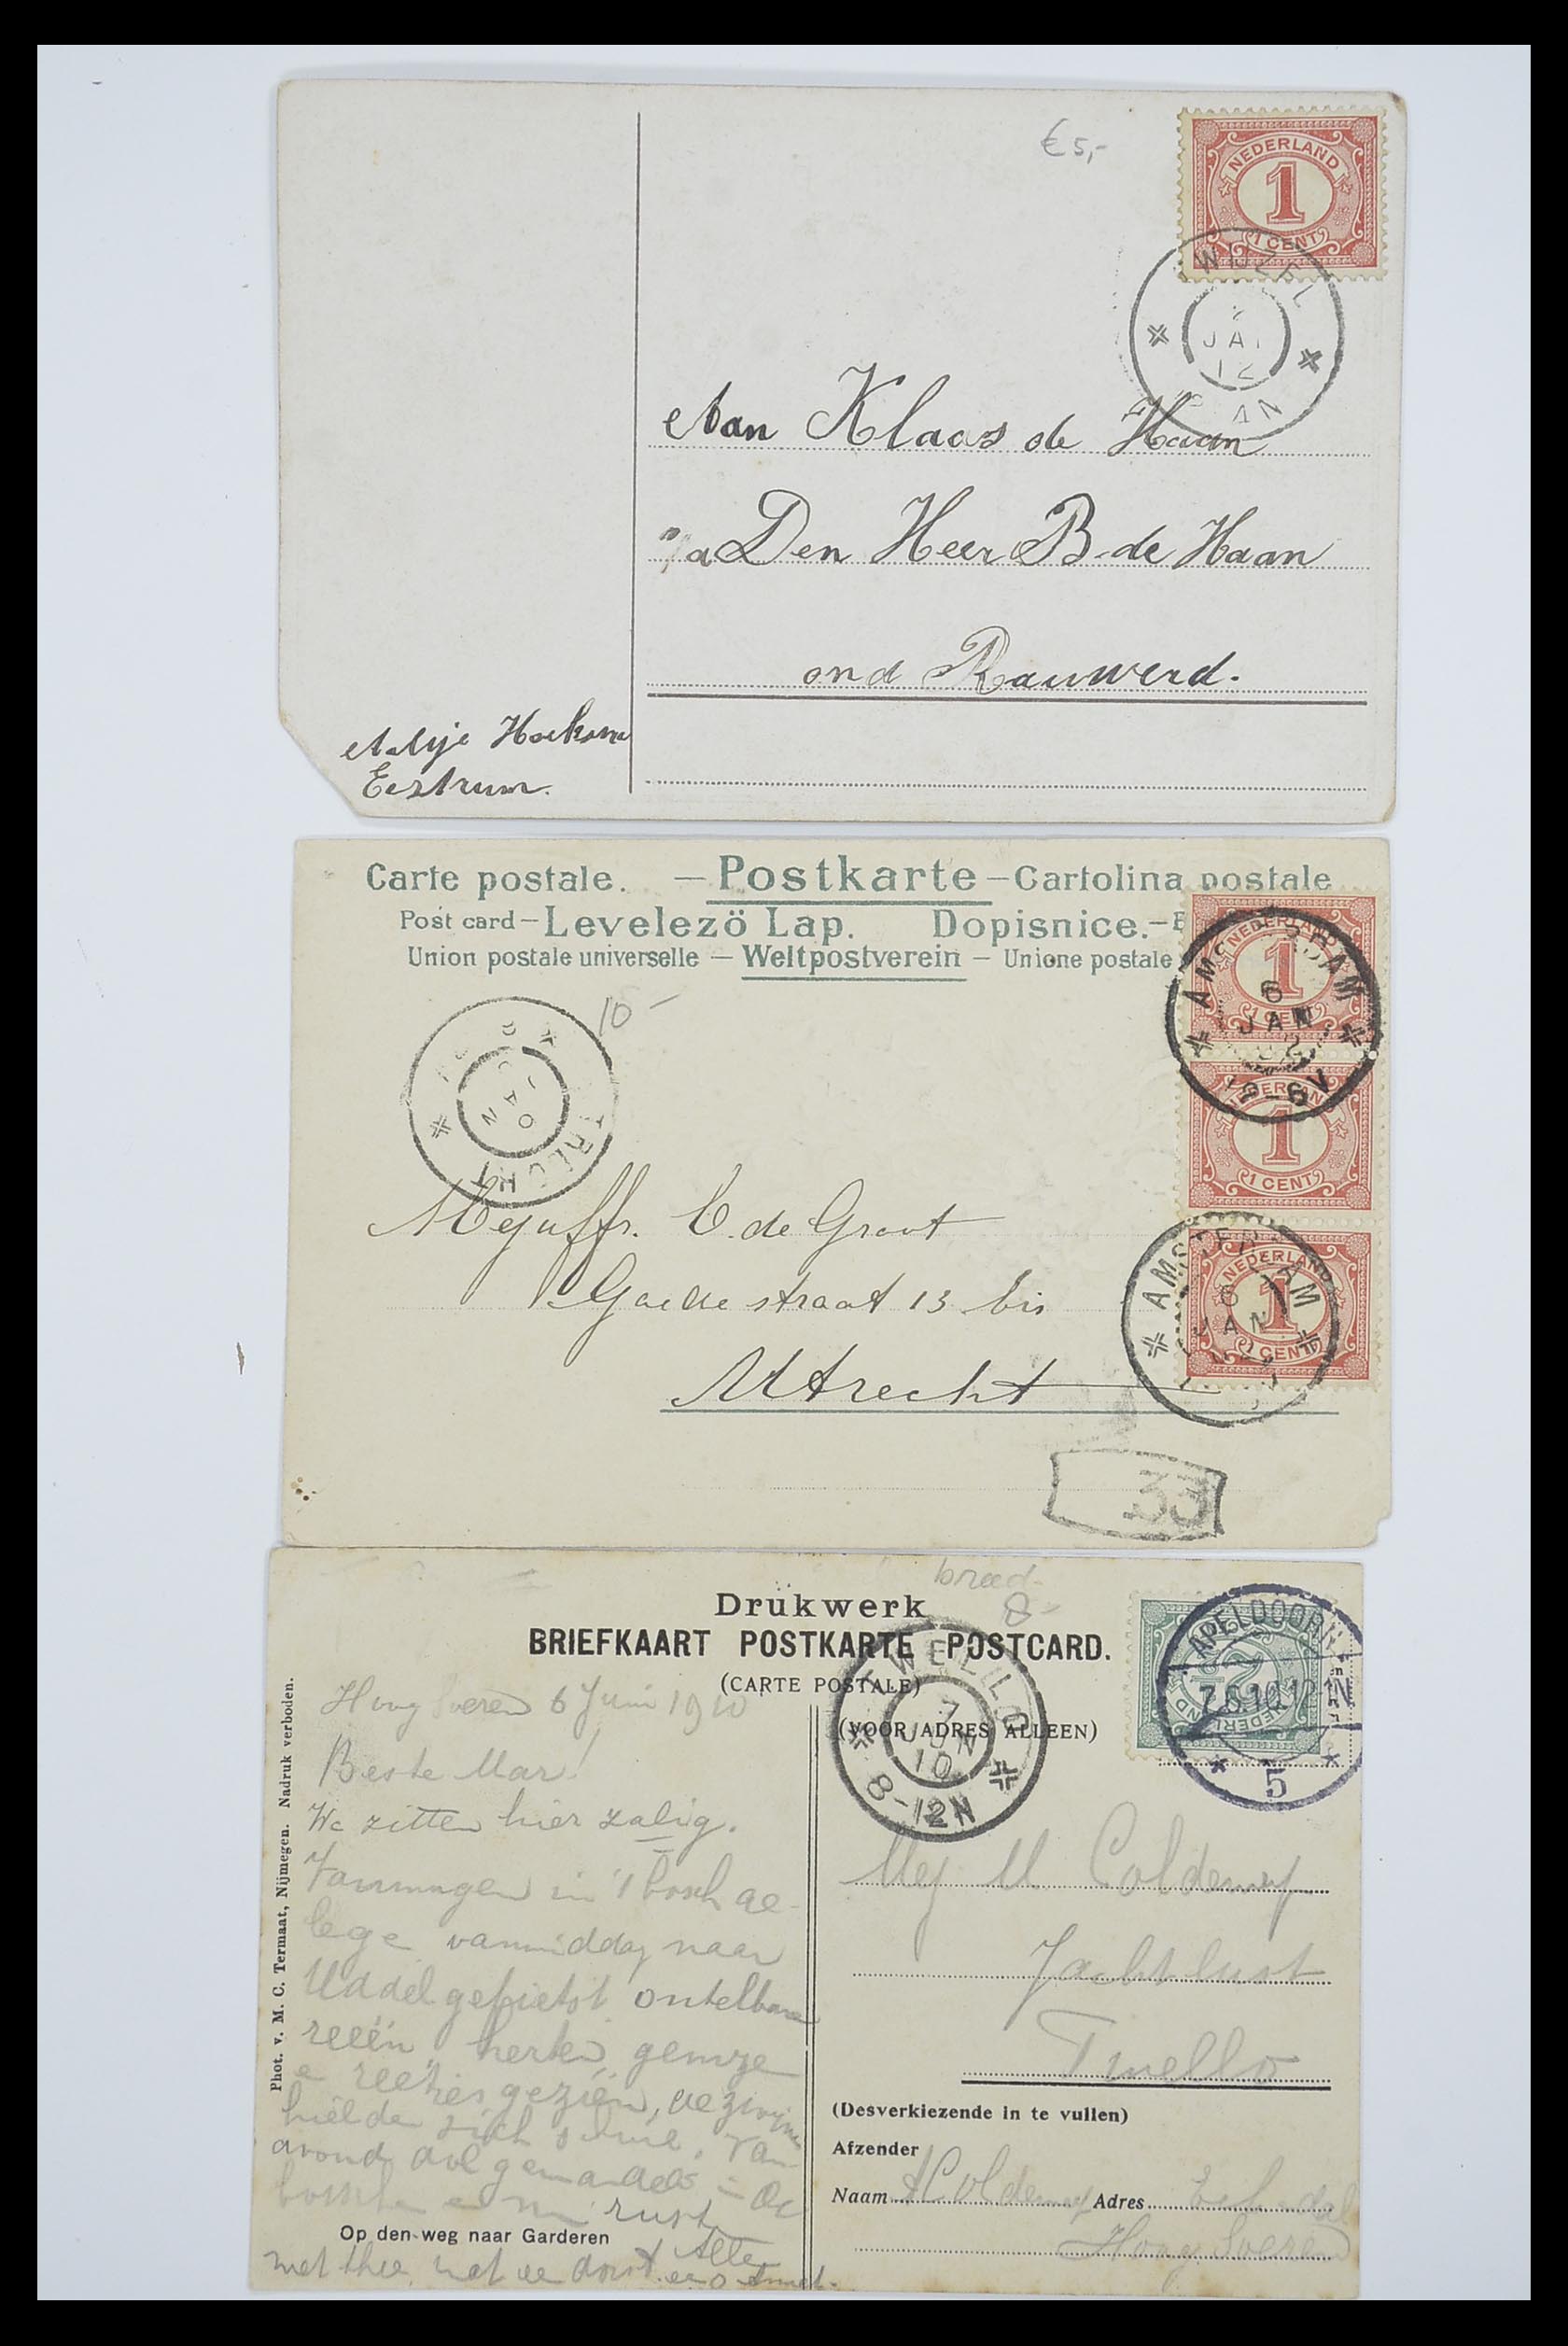 €5,-
NEDERLAND
1
1 CENT
WIJZEL
JAN
12
Aan Klaas de Haan
p/a Den Heer B. de Haan
ond Rauwerd.
Aaltje Hoeksma
Eestrum.
Carte postale. — Postkarte — Cartolina postale
Post card — Levelezö Lap. Dopisnice. —
Union postale universelle — Weltpostverein — Unione postale
NEDERLAND
1
1 CENT
AMSTERDAM
6
JAN
02
6V
10-
JAN
NEDERLAND
1
1 CENT
Mejuffr. C. de Groot
straat 13 bis
Utrecht
NEDERLAND
1
1 CENT
AMSTERDAM
6
JAN
33
breed
8-
Drukwerk
BRIEFKAART POSTKARTE POSTCARD.
(CARTE POSTALE)
(VOOR ADRES ALLEEN)
TWELLO
7
JUN
10
8-12N
APELDOORN
7.6.10.12-1N
5
NEDERLAND
Phot. v. M. C. Termaat, Nijmegen. Nadruk verboden.
Hoog Soeren 6 Juni 1910
Beste Mar!
We zitten hier zalig.
Vanmorgen in 't bosch ge-
lege vanmiddag naar
Uddel gefietst ontelbare
reeën herten gemze
e reetjes gezien, de zwijne
hielden zich schuil. Van
avond dol gewandeld in de
bosschen rust
Op den weg naar Garderen
met thee
Mej M Coldewey
Jachtlust
Twello
(Desverkiezende in te vullen)
Afzender
Naam Coldewey Adres
Hoog Soeren